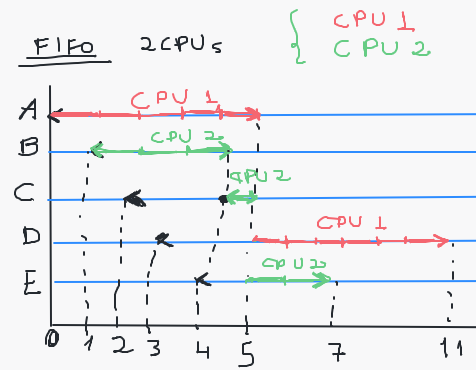 FIFO 2CPUs { CPU 1
CPU 2
A CPU 1
B CPU 2
C CPU 2
D CPU 1
E CPU 2
0 1 2 3 4 5 7 11